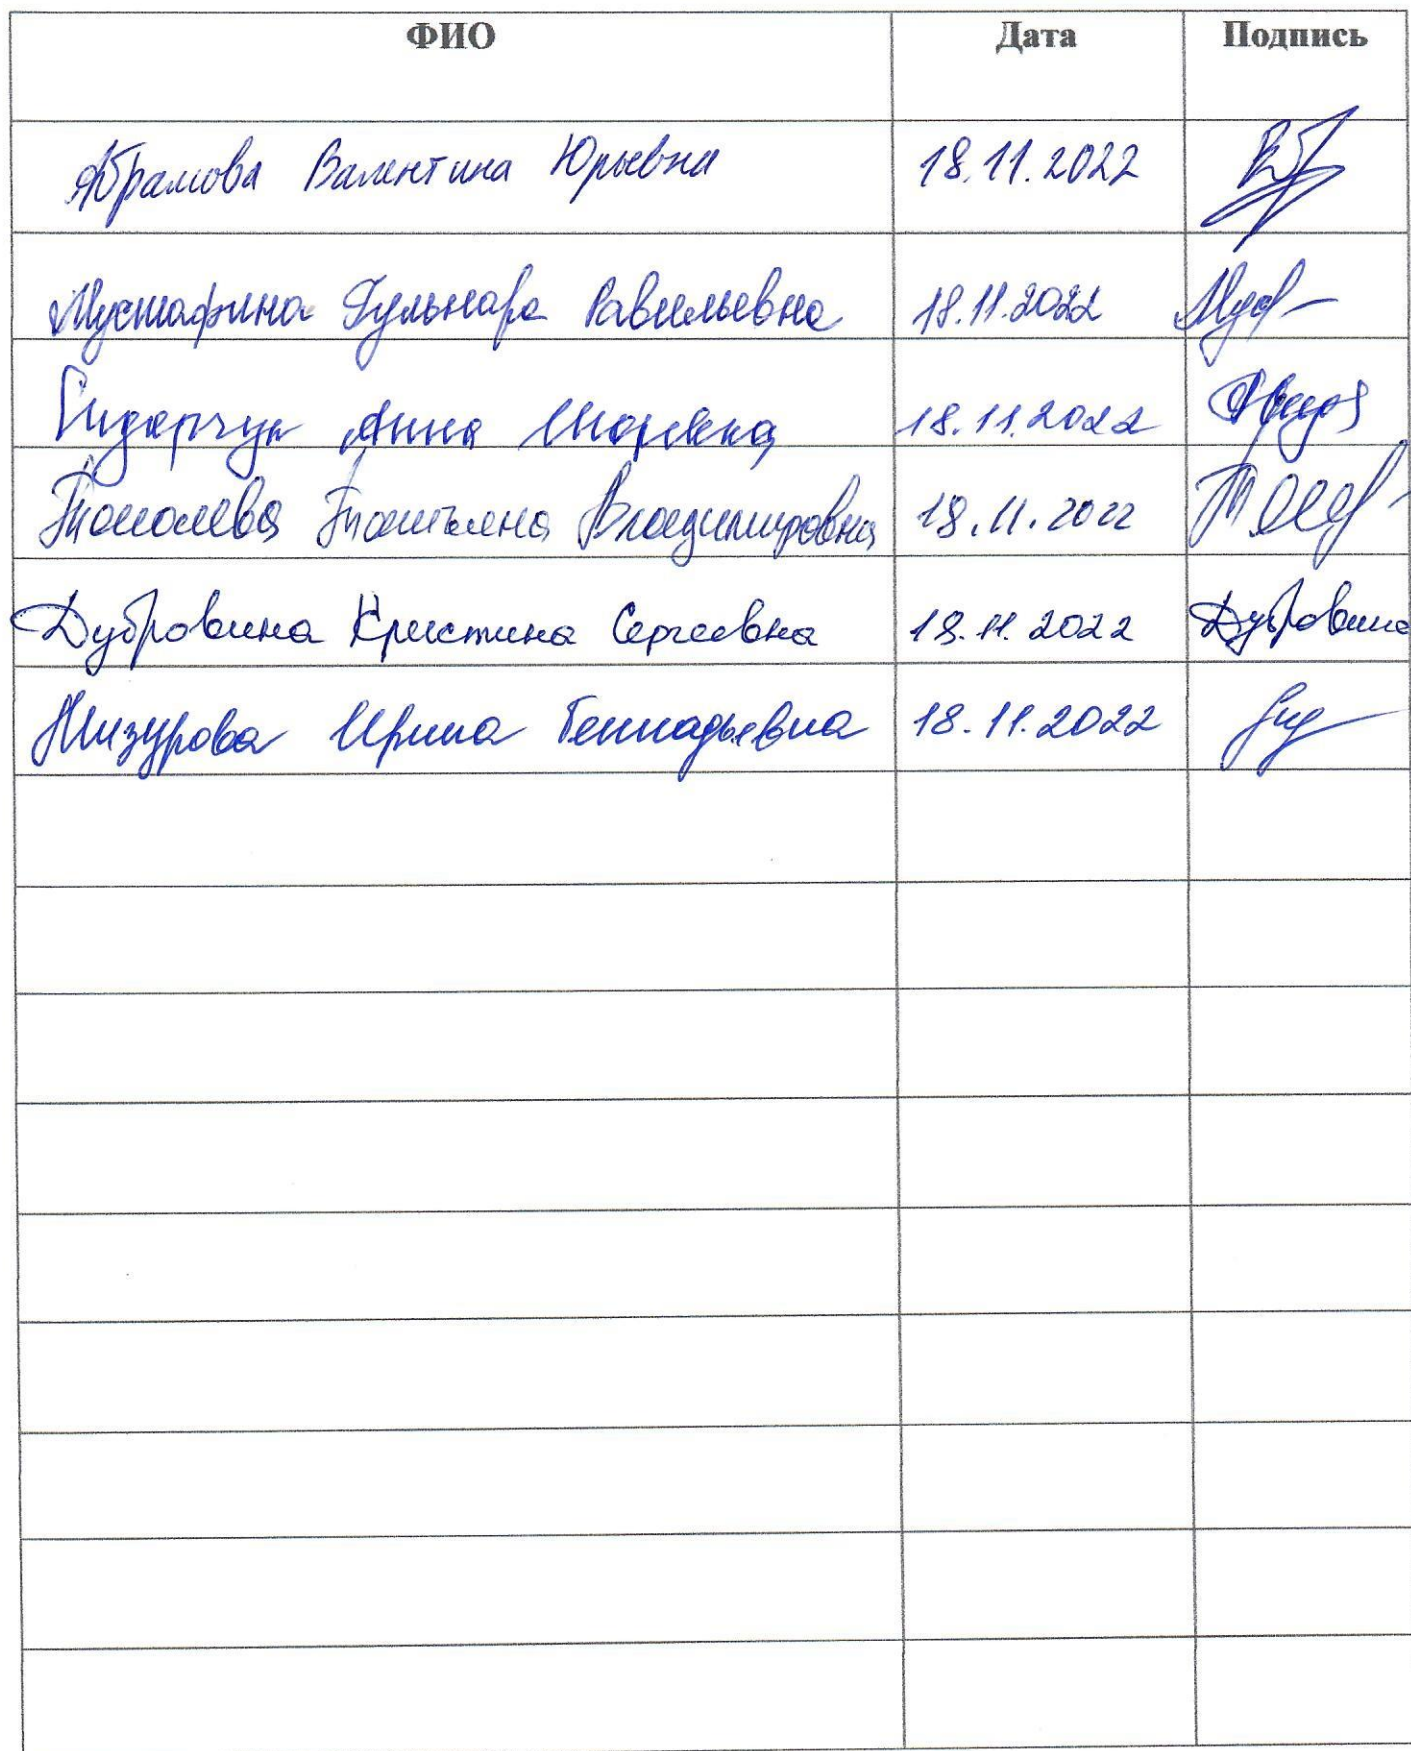 ФИО Дата Подпись
Абрамова Валентина Юрьевна 18.11.2022
Мустафина Гульнара Равильевна 18.11.2022
Анна Игоревна 18.11.2022
Татьяна Владимировна 18.11.2022
Дубровина Кристина Сергеевна 18.11.2022 Дубровина
Мизурова Ирина Геннадьевна 18.11.2022